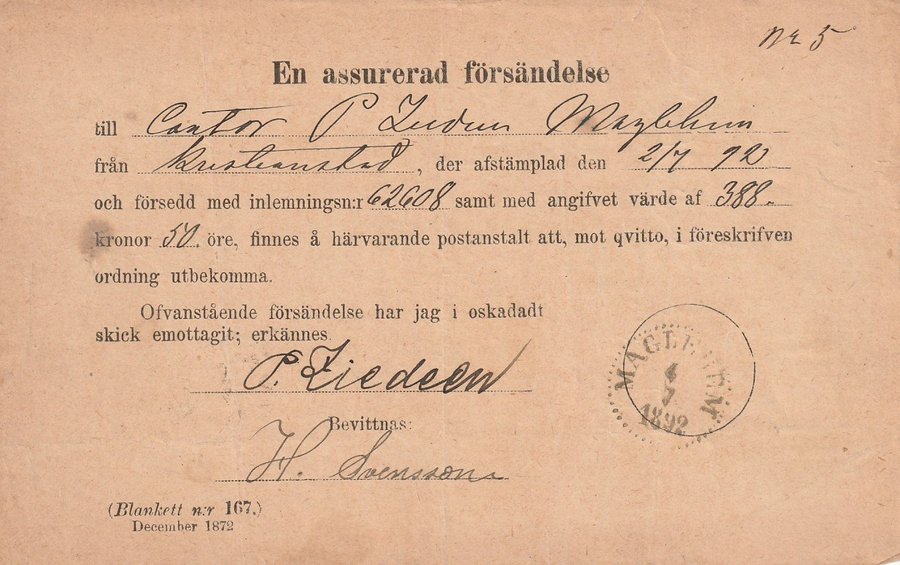 Nr 5
En assurerad försändelse
till Cantor P Maglehem
från Kristianstad, der afstämplad den 2/7 92
och försedd med inlemningsn:r 62608 samt med angifvet värde af 388.
kronor 50. öre, finnes å härvarande postanstalt att, mot qvitto, i föreskrifven
ordning utbekomma.
Ofvanstående försändelse har jag i oskadadt
skick emottagit; erkännes.
P.
MAGLEHEM
4
7
1892
Bevittnas:
H. Svensson
(Blankett n:r 167.)
December 1872